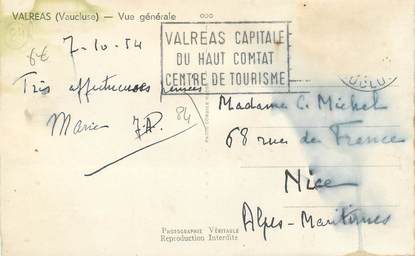 VALREAS (Vaucluse) — Vue générale
7-10-54
VALREAS CAPITALE
DU HAUT COMTAT
CENTRE DE TOURISME
Très affectueuses pensées
Marie J.P.
84
Madame C. Michel
68 rue de France
Nice
Alpes-Maritimes
PHOTOGRAPHIE VÉRITABLE
Reproduction Interdite